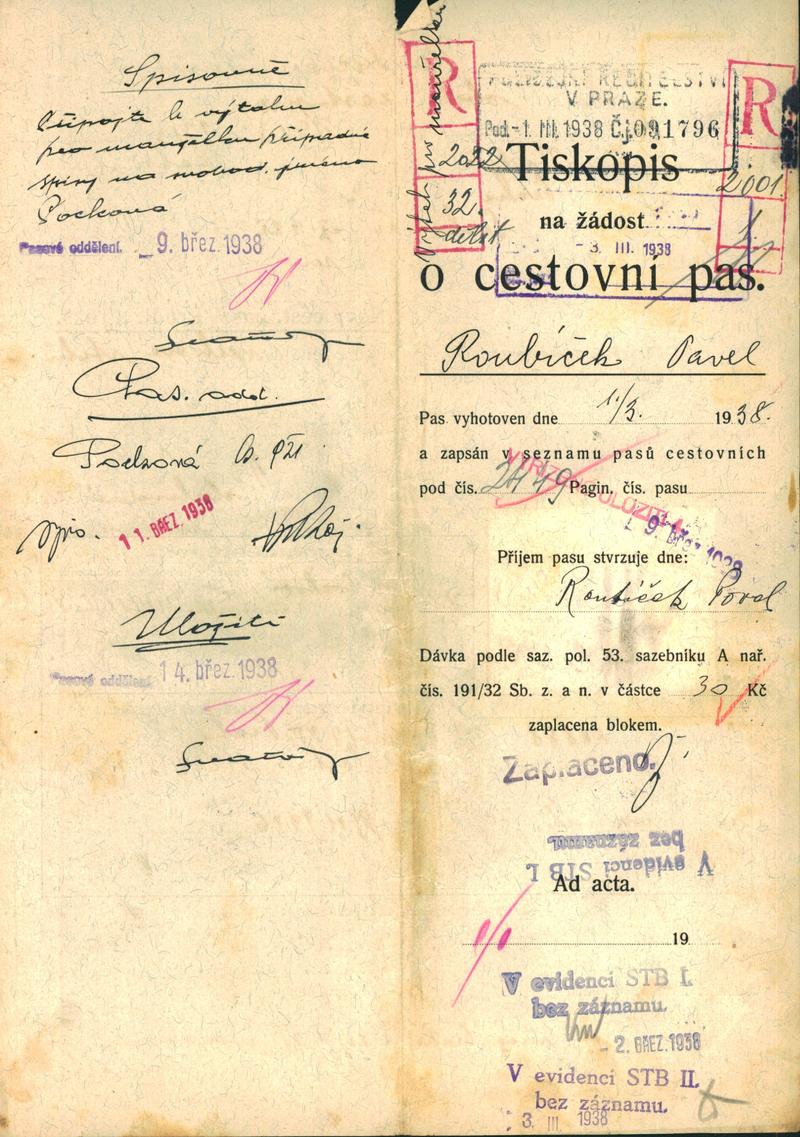 Spisovně
Připojte k výtahu
pro manželku případné
spisy na svobod. jméno
Pocková
Pasové oddělení. 9. břez. 1938
Pas. odd.
Pocková
11. BŘEZ 1938
Uložiti
Pasové oddělení 14. břez. 1938
R
R
POLICEJNÍ ŘEDITELSTVÍ
V PRAZE.
Pod. -1. III. 1938 Čj. 091796
2022
Tiskopis
2001
32.
na žádost
3. III. 1938
1.
o cestovní pas.
Roubíček Pavel
Pas vyhotoven dne 1/3. 1938.
a zapsán v seznamu pasů cestovních
pod čís. 2449 Pagin. čís. pasu
9. břez. 1938
Příjem pasu stvrzuje dne:
Roubíček Pavel
Dávka podle saz. pol. 53. sazebníku A nař.
čís. 191/32 Sb. z. a n. v částce 30 Kč
zaplacena blokem.
Zaplaceno.
V evidenci STB I.
bez záznamu.
Ad acta.
19
V evidenci STB I.
bez záznamu.
- 2. BŘEZ. 1938
V evidenci STB II.
bez záznamu.
3. III. 1938